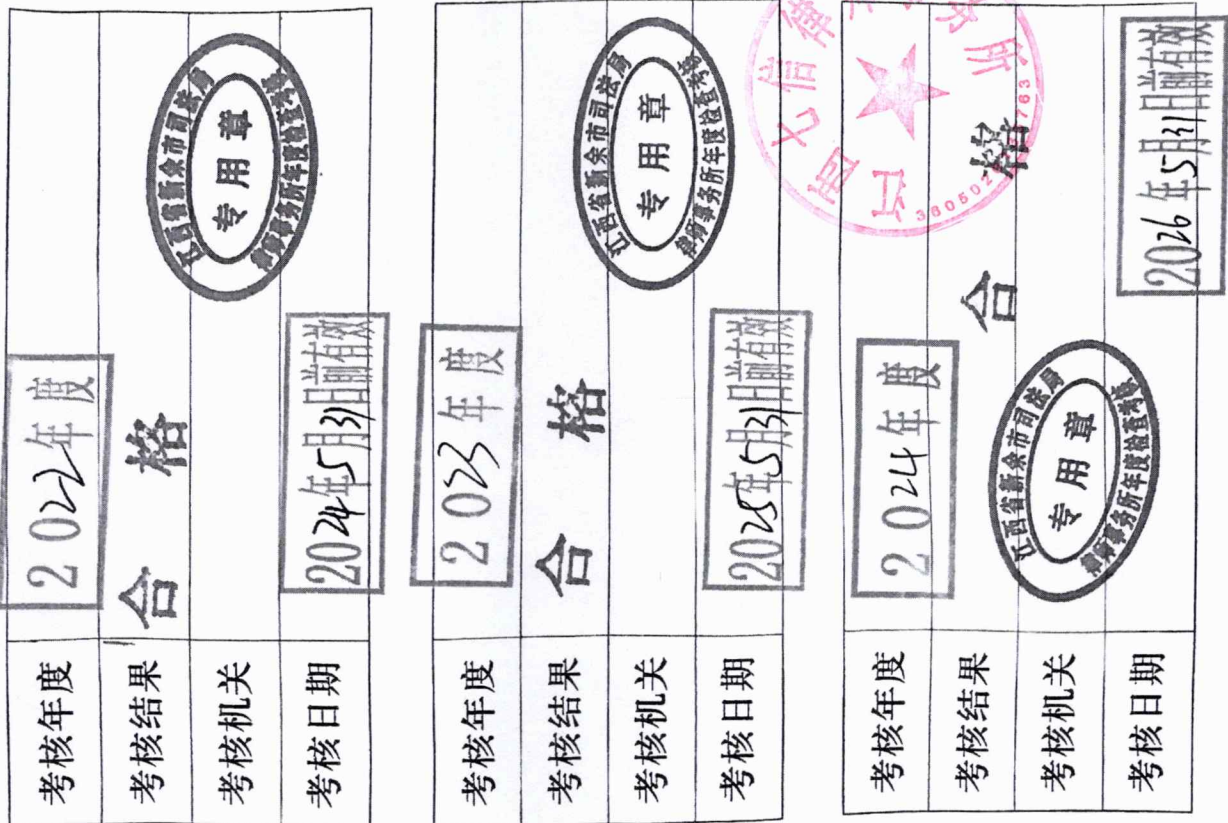 考核年度
2022年度
考核结果
合格
考核机关
江西省新余市司法局
专用章
律师事务所年度检查考核
考核日期
2024年5月31日前有效
考核年度
2023年度
考核结果
合格
考核机关
江西省新余市司法局
专用章
律师事务所年度检查考核
考核日期
2025年5月31日前有效
考核年度
2024年度
考核结果
合格
考核机关
江西省新余市司法局
专用章
律师事务所年度检查考核
考核日期
2026年5月31日前有效